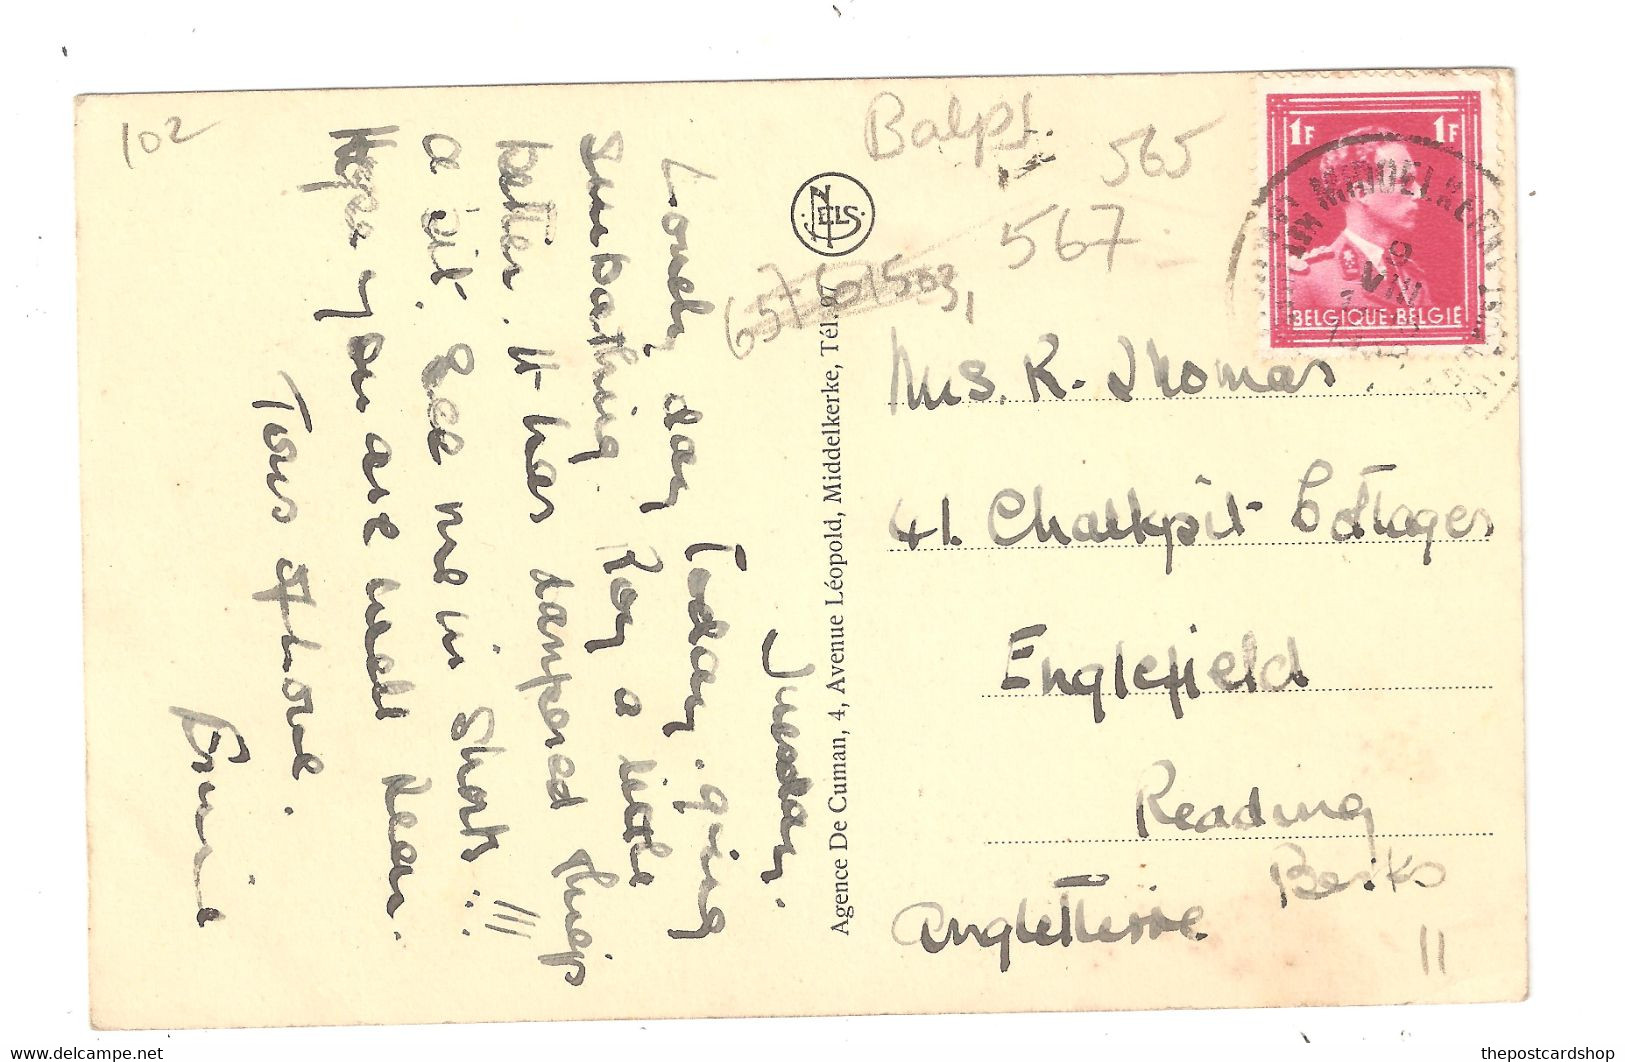 102
Tuesday.
Lovely day today. going
sunbathing. Roy a little
better. It has dampered things
a bit. See me in shorts!!!
Hope you are well dear.
Tons of love.
Ernie
NELS
Agence De Cuman, 4, Avenue Léopold, Middelkerke, Tél. 97
565
567
1F 1F
BELGIQUE·BELGIE
MIDDELKERKE
VIII
Mrs. R. Thomas
41. Chalkpit Cottages
Englefield
Reading
Berks
Angleterre
11
www.delcampe.net
thepostcardshop